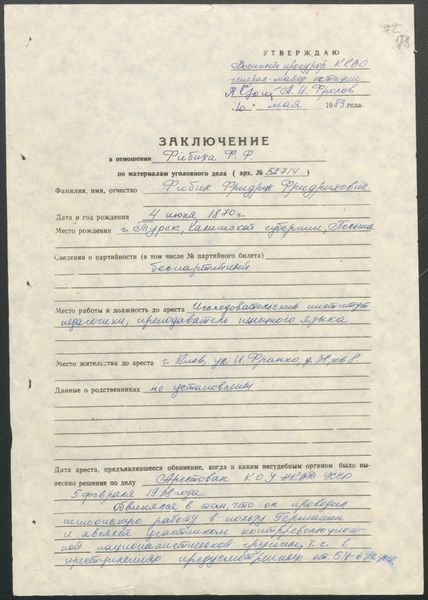 72
78
УТВЕРЖДАЮ
Военный прокурор КВО
генерал-майор юстиции
А.И. Фролов
10 " мая 1989 года.
ЗАКЛЮЧЕНИЕ
в отношении Фибиха Ф.Ф
по материалам уголовного дела ( арх. № 52714)
Фамилия, имя, отчество Фибик Фридрих Фридрихович
Дата и год рождения 4 июня 1870г.
Место рождения г. Турек, Калишской губернии, Польша
Сведения о партийности (в том числе № партийного билета)
беспартийный
Место работы и должность до ареста Исследовательский институт
педагогики, преподаватель немецкого языка
Место жительства до ареста г. Киев, ул. И. Франко, д. 38, кв 8
Данные о родственниках не установлены
Дата ареста, предъявлявшееся обвинение, когда и каким несудебным органом было вы-
несено решение по делу Арестован КОУ НКВД УССР
5 февраля 1938 года.
Обвинялся в том, что он проводил
шпионскую работу в пользу Германии
и являлся участником контрреволюцион-
ной националистической группы, т.е. в
преступлениях предусмотренных ст. 54-6